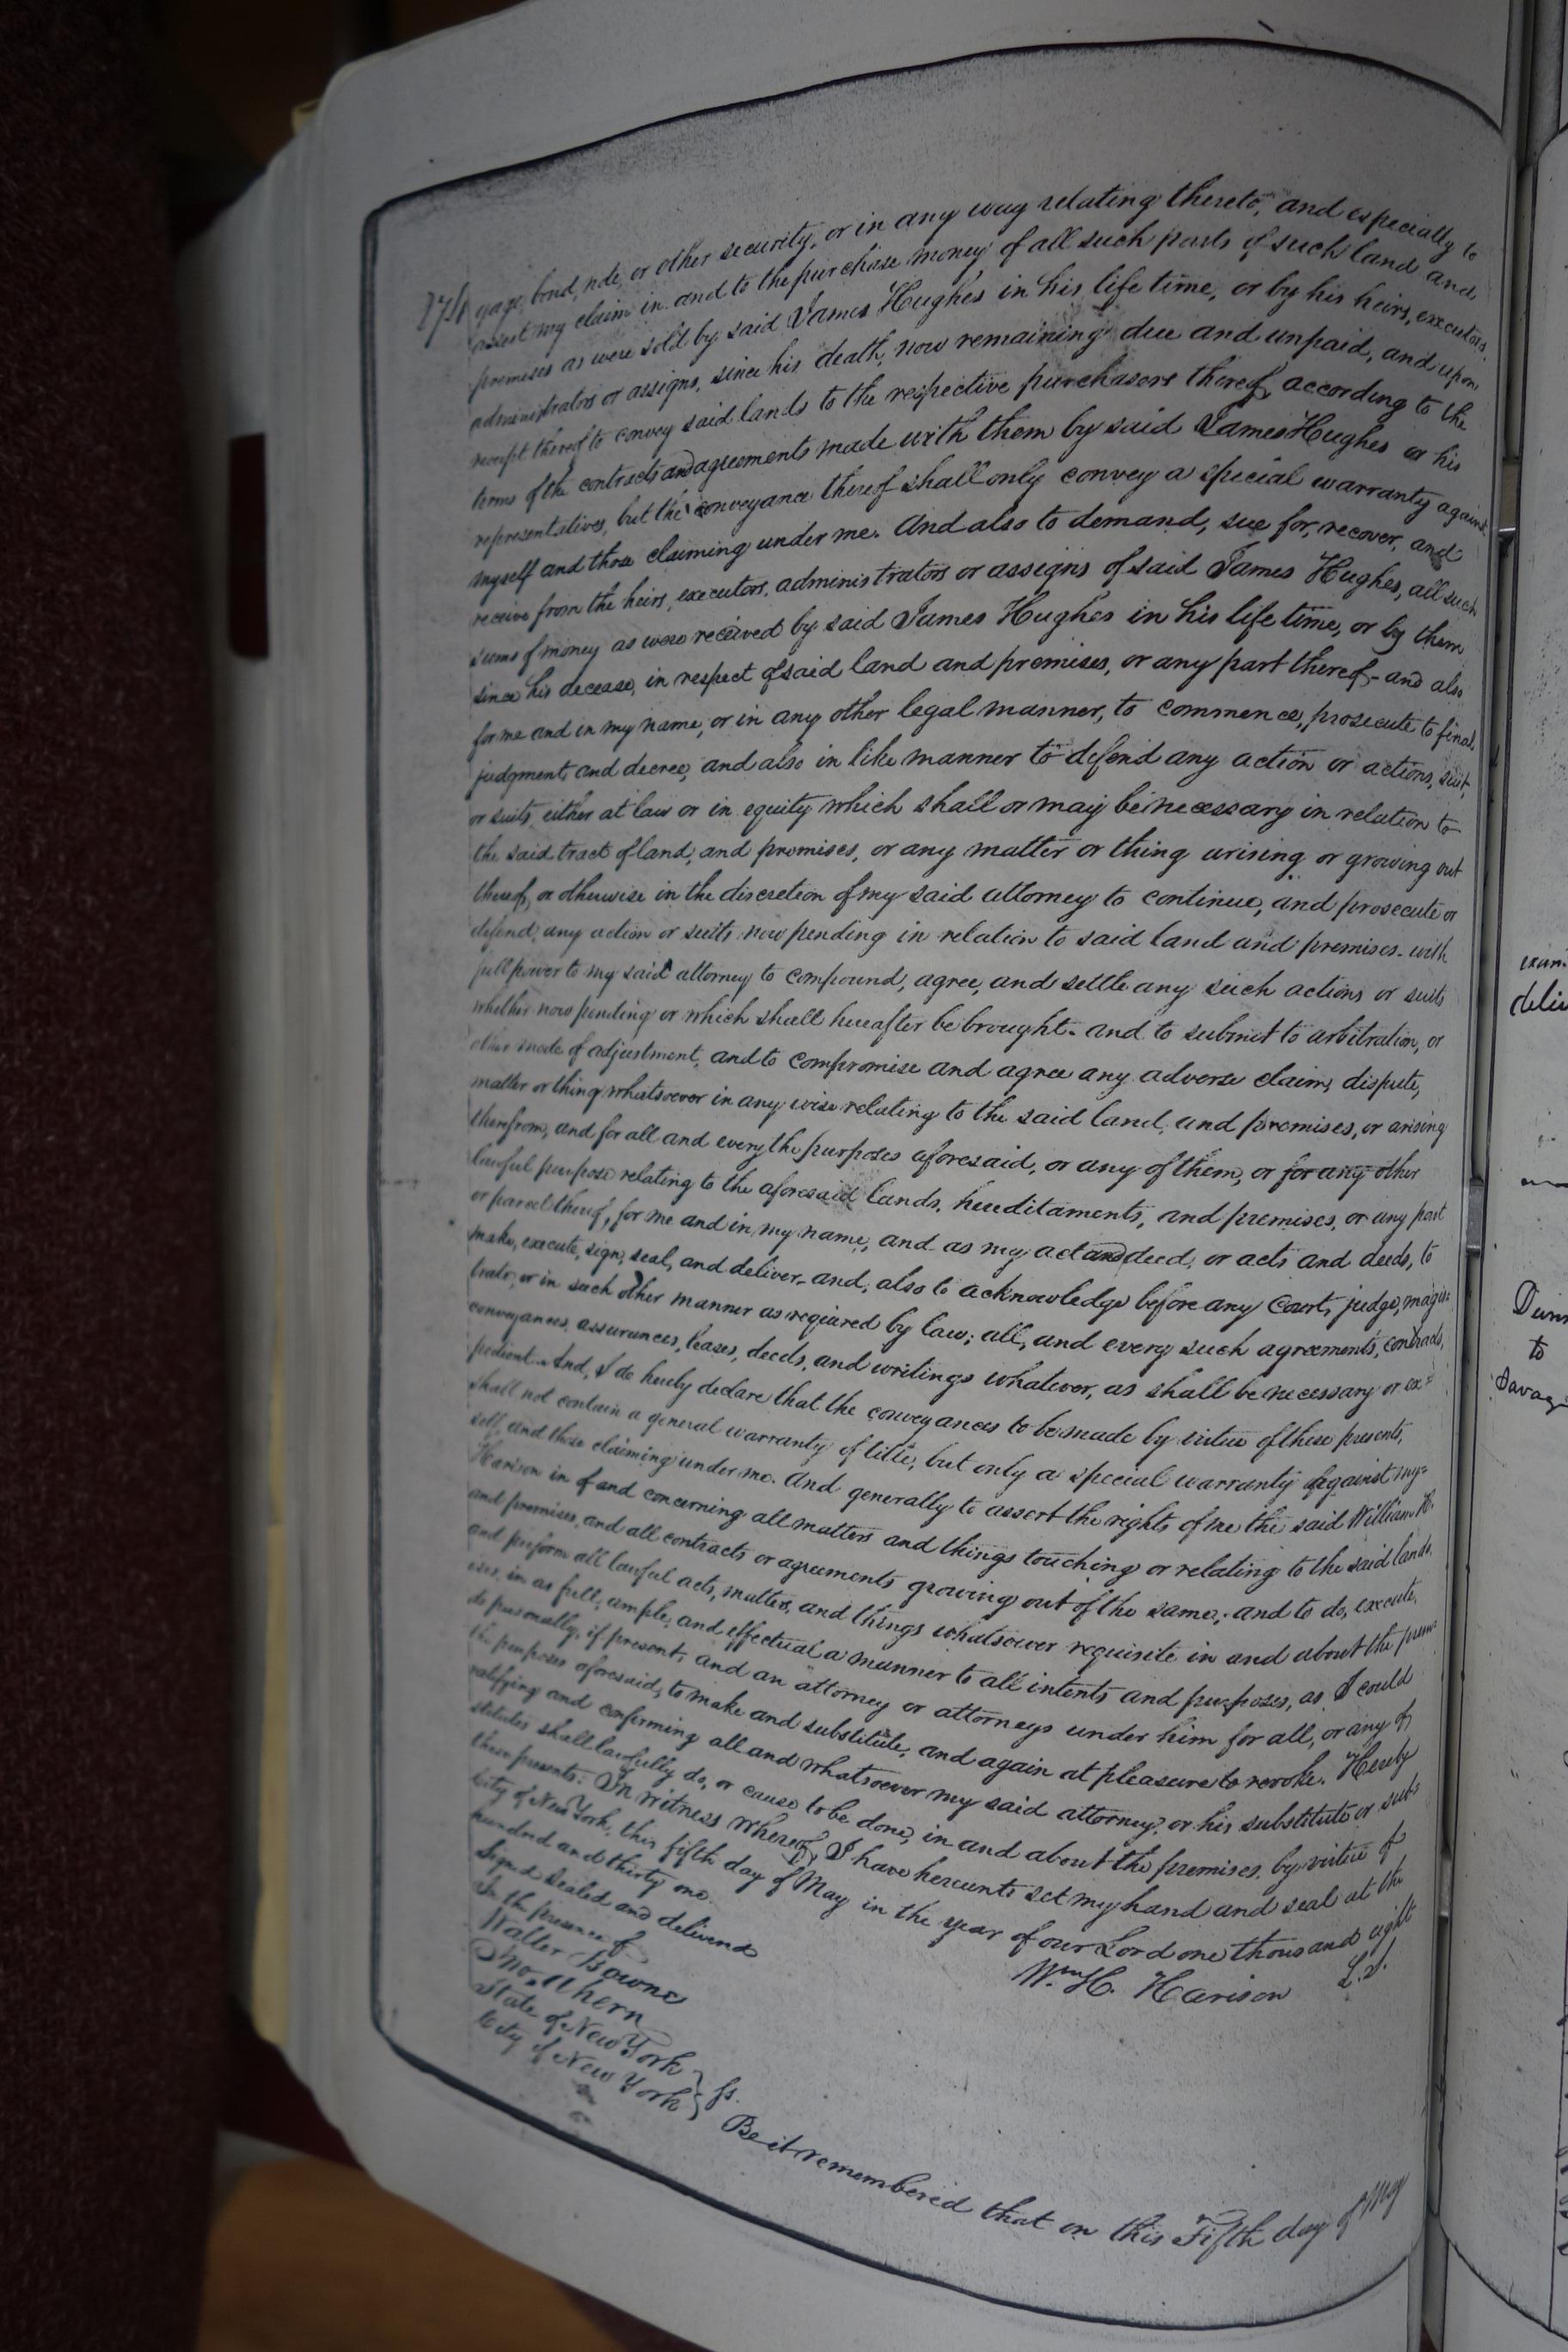 gage, bond, note, or other security, or in any way relating thereto, and especially to
assert my claim in and to the purchase money of all such parts of such land and
premises as were sold by said James Hughes in his life time, or by his heirs, executors,
administrators or assigns, since his death, now remaining due and unpaid, and upon
receipt thereof to convey said lands to the respective purchasers thereof, according to the
terms of the contracts and agreements made with them by said James Hughes or his
representatives, but the conveyance thereof shall only convey a special warranty against
myself and those claiming under me. And also to demand, sue for, recover, and
receive from the heirs, executors, administrators or assigns of said James Hughes, all such
sums of money as were received by said James Hughes in his life time, or by them
since his decease, in respect of said land and premises, or any part thereof - and also
for me and in my name, or in any other legal manner, to commence, prosecute to final
judgment and decree, and also in like manner to defend any action or actions, suit,
or suits, either at law or in equity which shall or may be necessary in relation to
the said tract of land, and premises, or any matter or thing arising or growing out
thereof, or otherwise in the discretion of my said attorney to continue, and prosecute or
defend, any action or suits now pending in relation to said land and premises. with
full power to my said attorney to compound, agree, and settle any such actions or suits
whether now pending or which shall hereafter be brought. and to submit to arbitration, or
other mode of adjustment, and to compromise and agree any adverse claim, dispute,
matter or thing whatsoever in any wise relating to the said land, and premises, or arising
therefrom, and for all and every the purposes aforesaid, or any of them, or for any other
lawful purpose relating to the aforesaid lands, hereditaments, and premises, or any part
or parcel thereof, for me and in my name, and as my act and deed, or acts and deeds, to
make, execute, sign, seal, and deliver, and, also to acknowledge before any Court, judge, magis=
trate, or in such other manner as required by law; all, and every such agreements, contracts,
conveyances, assurances, leases, deeds, and writings whatever, as shall be necessary or ex=
pedient. And, I do hereby declare that the conveyances to be made by virtue of these presents,
shall not contain a general warranty of title, but only a special warranty against my=
self, and those claiming under me. And generally to assert the rights of me the said William H.
Harison in of and concerning all matters and things touching or relating to the said lands,
and premises, and all contracts or agreements growing out of the same; and to do, execute,
and perform all lawful acts, matters, and things whatsoever requisite in and about the prem=
ises, in as full, ample, and effectual a manner to all intents and purposes, as I could
do personally, if present, and an attorney or attorneys under him for all, or any of
the purposes aforesaid, to make and substitute, and again at pleasure to revoke. Hereby
ratifying and confirming all and whatsoever my said attorney, or his substitute or sub=
stitutes shall lawfully do, or cause to be done, in and about the premises, by virtue of
these presents. In witness whereof, I have hereunto set my hand and seal at the
City of New York, this fifth day of May in the year of our Lord one thousand eight
hundred and thirty one.
Signed Sealed and delivered
In the presence of
Wm. H. Harison L.S.
Walter Bowne
Jno. Ahern
State of New York } ss.
City of New York }
Be it remembered that on this Fifth day of May
exam
deliv
to
Savag